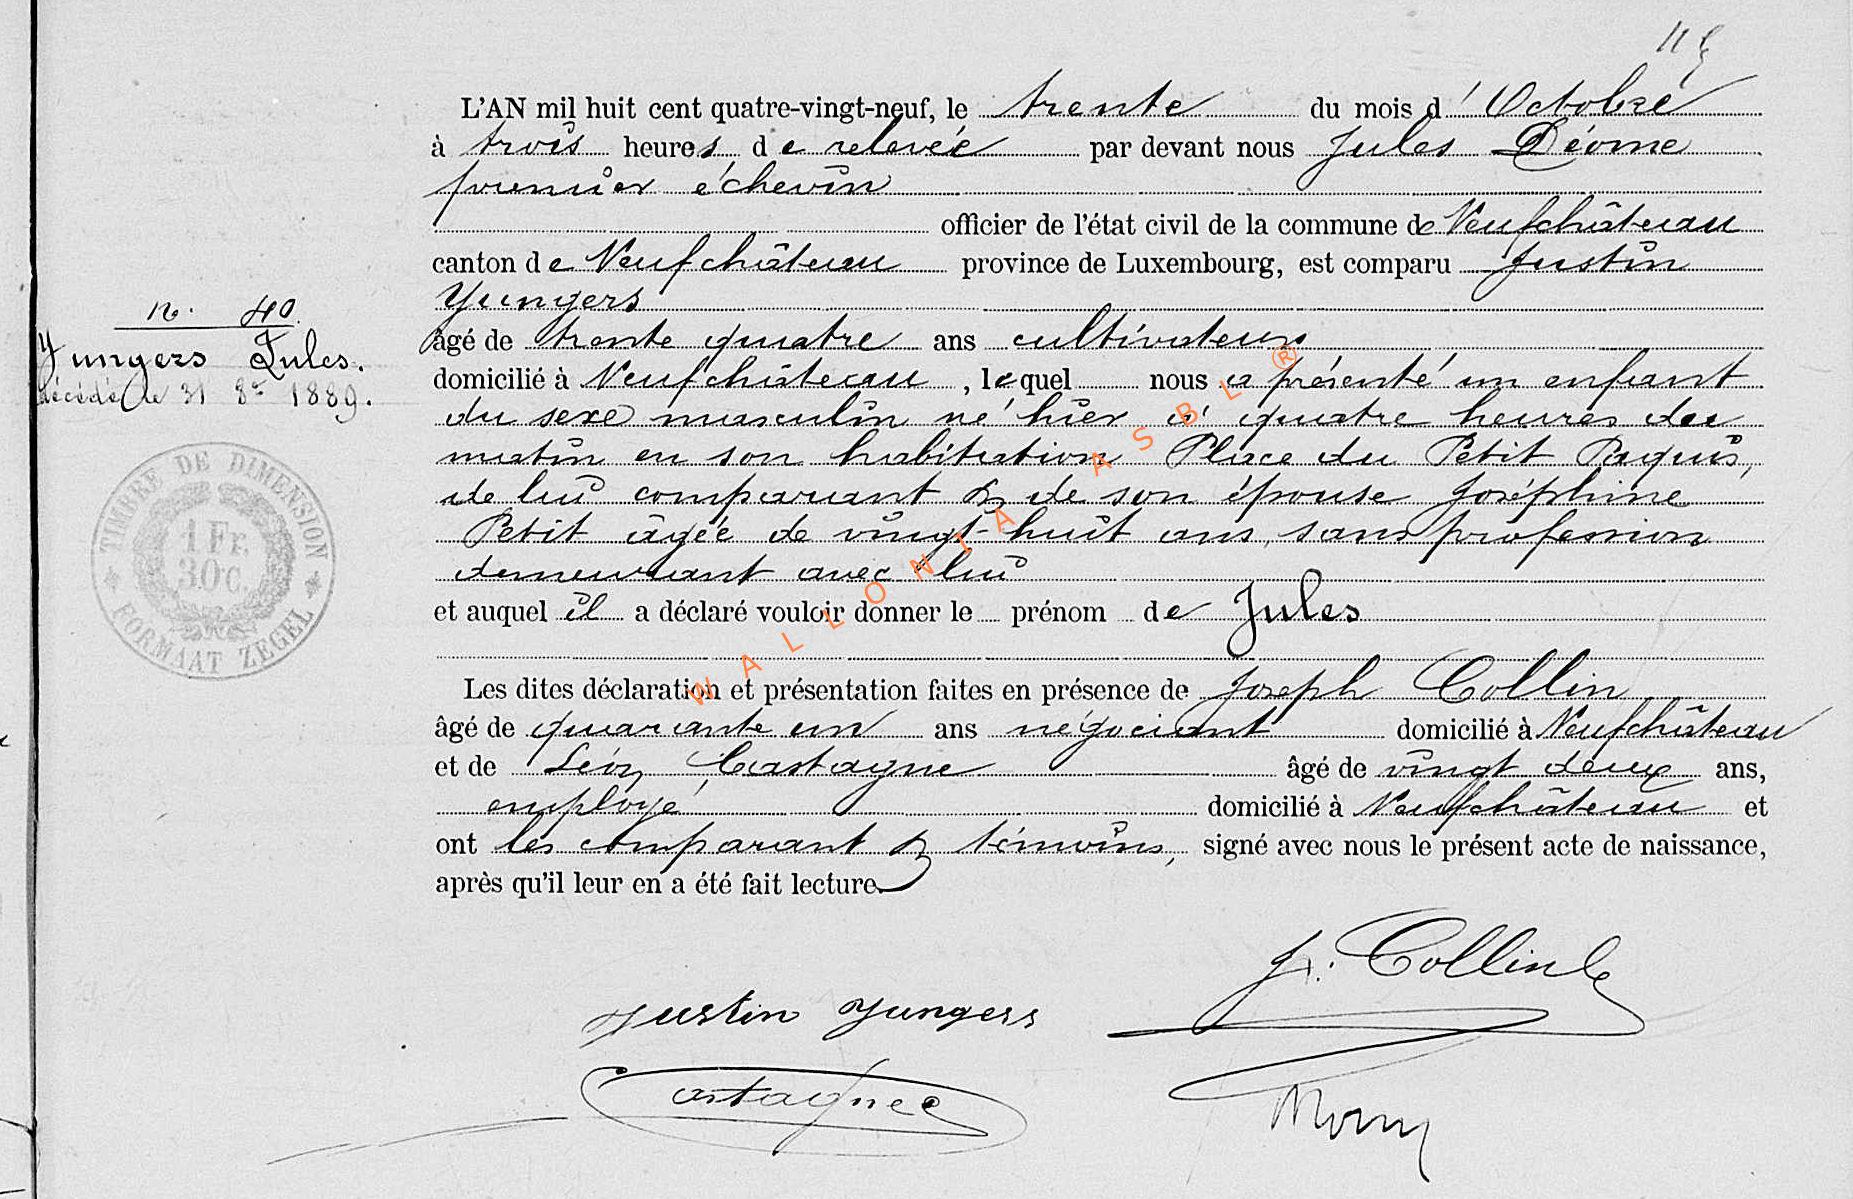 115
L'AN mil huit cent quatre-vingt-neuf, le trente du mois d'Octobre
à trois heures de relevée par devant nous Jules Déome
premier échevin
officier de l'état civil de la commune de Neufchâteau
canton de Neufchâteau province de Luxembourg, est comparu Justin
Yungers
âgé de trente quatre ans cultivateur
domicilié à Neufchâteau, lequel nous a présenté un enfant
du sexe masculin né hier à quatre heures du
matin en son habitation Place du Petit Paquis,
de lui comparant & de son épouse Joséphine
Petit âgée de vingt-huit ans, sans profession
demeurant avec lui
et auquel il a déclaré vouloir donner le prénom de Jules
Les dites déclaration et présentation faites en présence de Joseph Collin
âgé de quarante un ans négociant domicilié à Neufchâteau
et de Léon Castagne âgé de vingt deux ans,
employé domicilié à Neufchâteau et
ont les comparant & témoins, signé avec nous le présent acte de naissance,
après qu'il leur en a été fait lecture.
n. 40.
Yungers Jules.
décédé le 31 8re 1889.
TIMBRE DE DIMENSION
1 Fr.
30 C.
FORMAAT ZEGEL
WALLONIA ASBL ®
J. Collin
Justin Yungers
Castagne